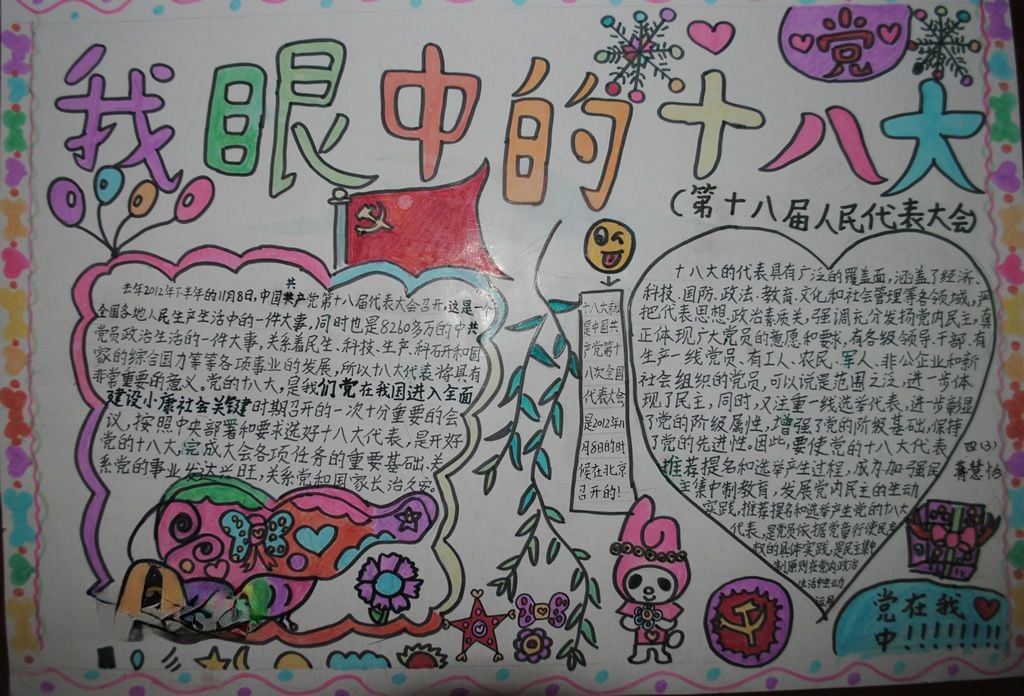 党
我眼中的十八大
(第十八届人民代表大会)
去年2012年下半年的11月8日,中国共产党第十八届代表大会召开,这是一个
全国各地人民生产生活中的一件大事,同时也是8260多万的中共
党员政治生活的一件大事,关系着民生、科技、生产、科石开和国
家的综合国力等等各项事业的发展,所以十八大代表将具有
非常重要的意义。党的十八大,是我们党在我国进入全面
建设小康社会关键时期召开的一次十分重要的会
议,按照中央部署和要求选好十八大代表,是开好
党的十八大,完成大会各项任务的重要基础,关
系党的事业发达兴旺,关系党和国家长治久安。
十八大就
是中国共
产党第十
八次全国
代表大会
是2012年11
月8日的时
候在北京
召开的!
十八大的代表具有广泛的覆盖面,涵盖了经济、
科技、国防、政法、教育、文化和社会管理等各领域,严
把代表思想、政治素质关,强调充分发扬党内民主,真
正体现广大党员的意愿和要求,有各级领导干部,有
生产一线党员,有工人、农民、军人、非公企业和新
社会组织的党员,可以说是范围之泛,进一步体
现了民主,同时,又注重一线选举代表,进一步彰显
了党的阶级属性,增强了党的阶级基础,保持
了党的先进性。因此,要使党的十八大代表
推荐提名和选举产生过程,成为加强民
主集中制教育,发展党内民主的生动
实践,推荐提名和选举产生党的十八大
代表,是党员依据党章行使民主
权的具体实践,是民主集中
制原则在党内政治
生活中生动
运用
四(3)
蒋慧怡
党在我
中!!!!!!!!